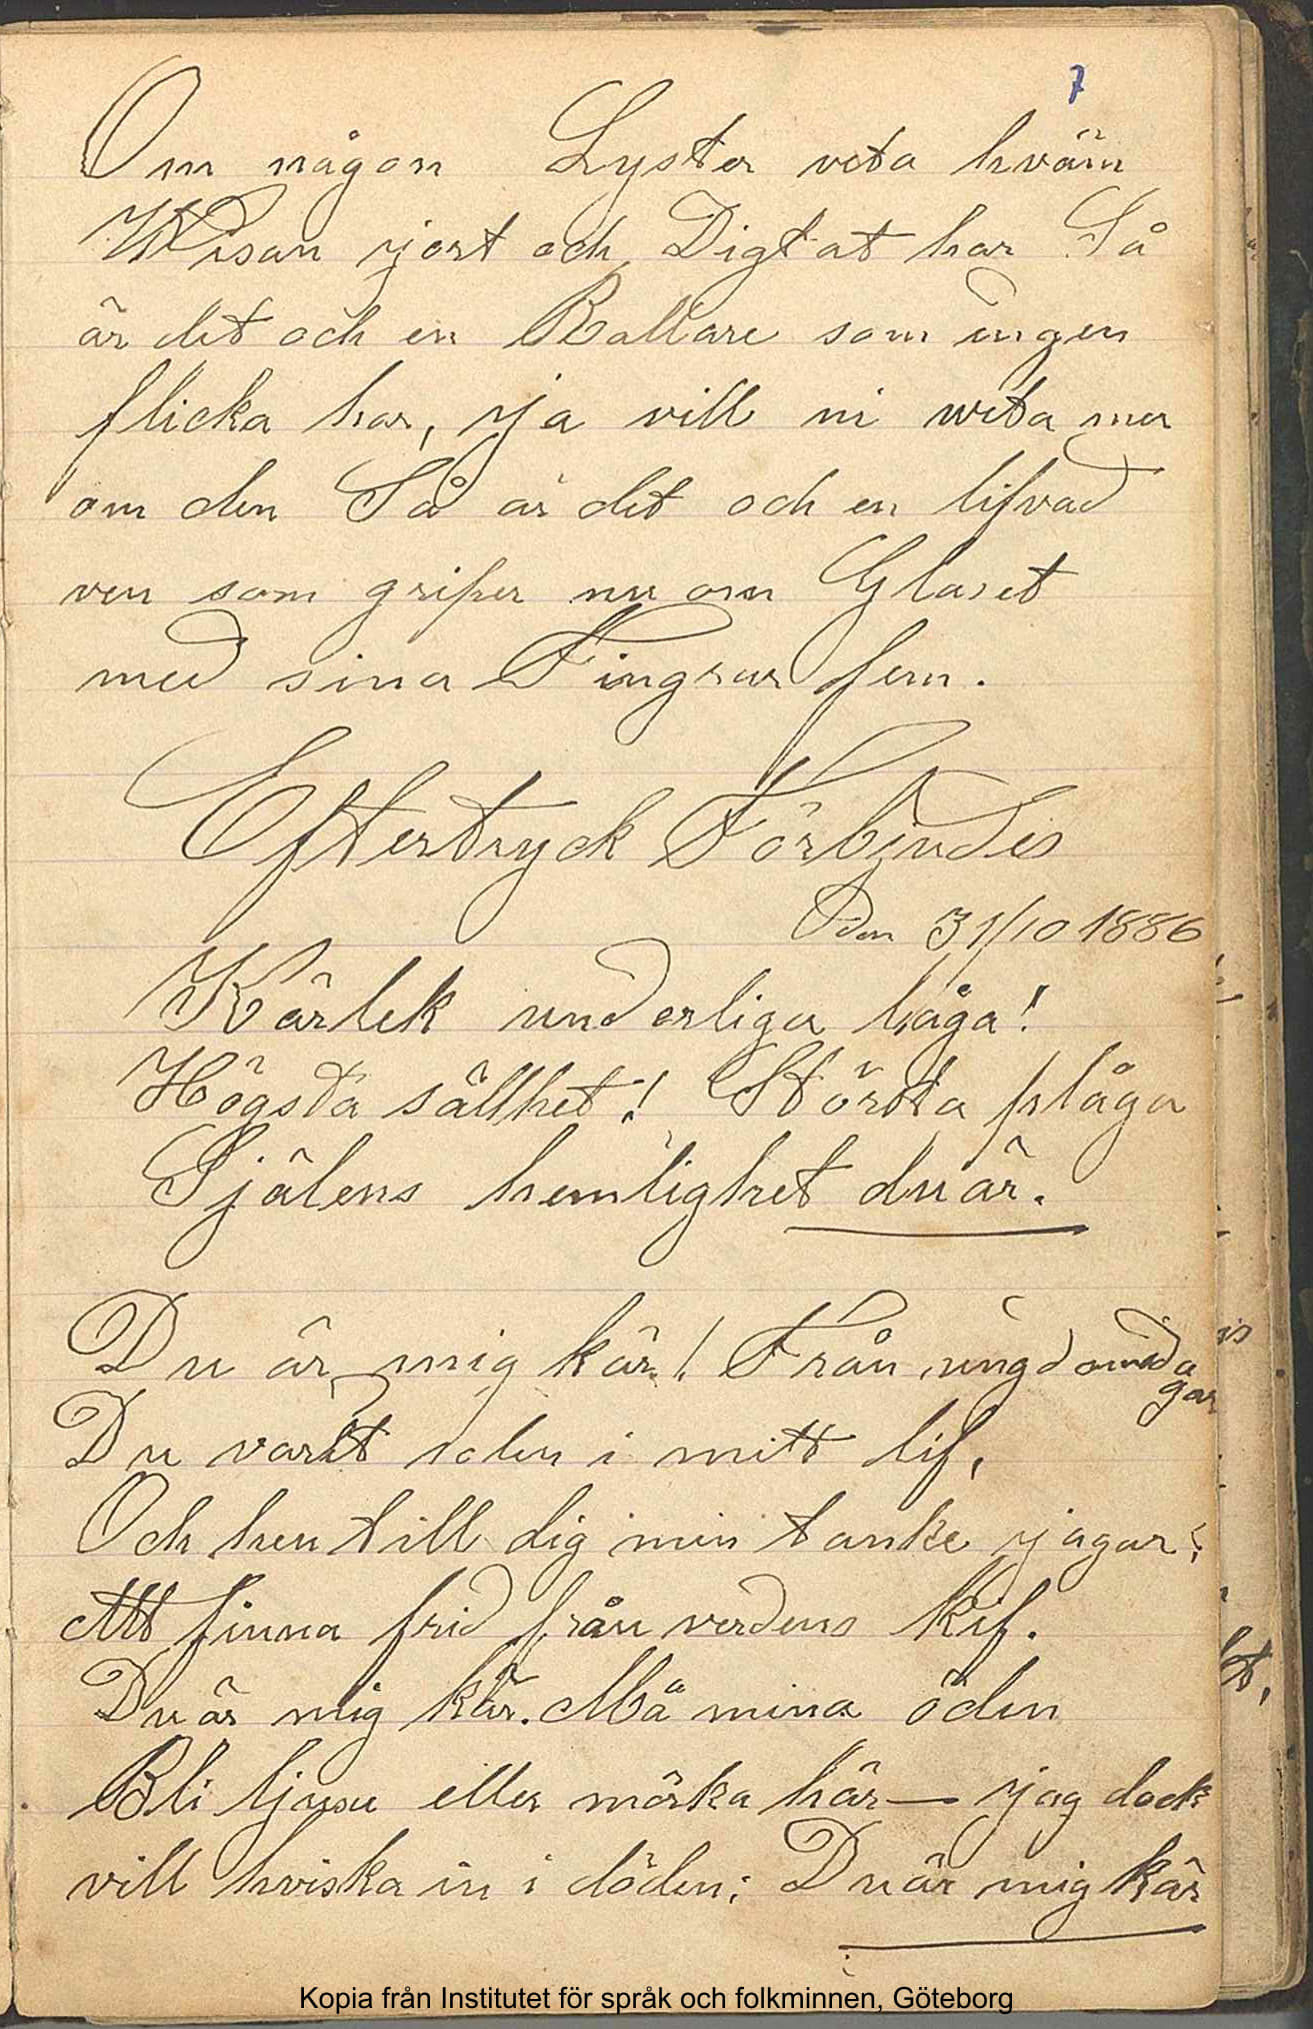 7
Om någon Lyster veta hväm
Wisan gjort och Digtat har Så
är det och en Rallare som ingen
flicka har, ja vill ni weta mer
om den Så är det och en lifvad
ven som griper nu om Glaset
med sina Fingrar fem.
Eftertryck Förbjudes
Den 31/10 1886
Kärlek underliga låga!
Högsta sällhet! Största plåga
Själens hemlighet du är.
Du är mig kär! Från ungdomsda
gar
Du varit solen i mitt lif,
Och hen till dig min tanke jagar:
Att finna frid från verdens kif.
Du är mig kär. Må mina öden
Bli ljusa eller mörka här— jag dock
vill hviska in i döden: Du är mig kär
Kopia från Institutet för språk och folkminnen, Göteborg